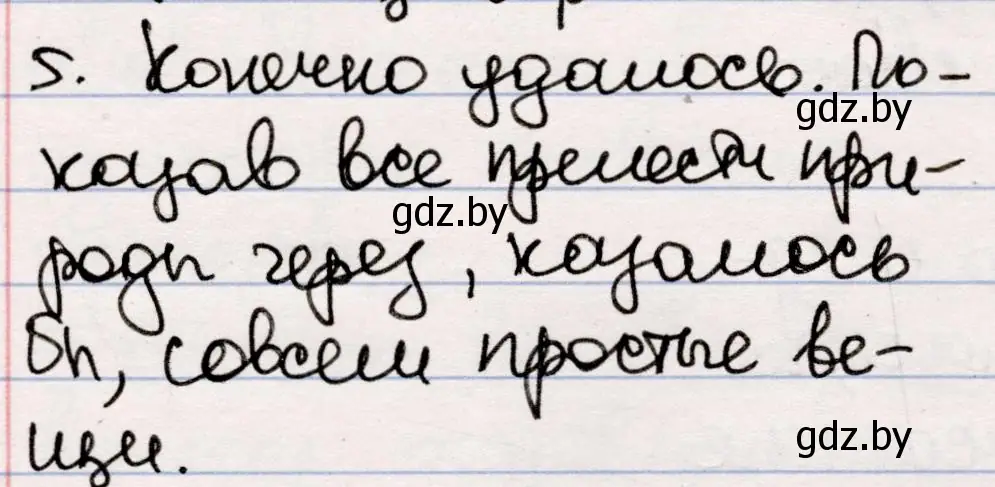 5. Конечно удалось. По-
казав все прелести при-
роды через, казалось
бы, совсем простые ве-
щи.
gdz.by
gdz.by
gdz.by